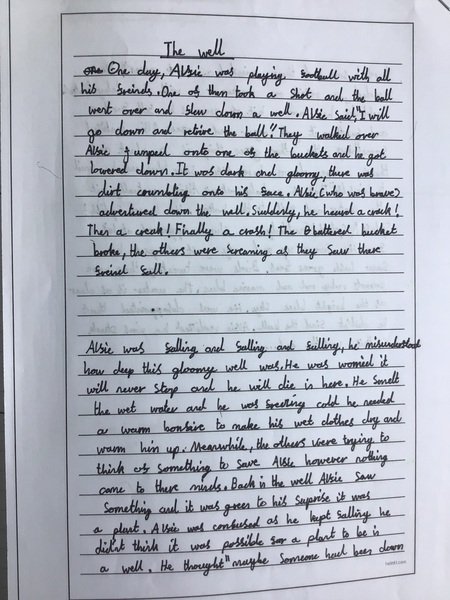 The well
One day, Alfie was playing football with all
his freinds. One of then took a shot and the ball
went over and flew down a well. Alfie said, "I will
go down and retrive the ball." They walked over
Alfie jumped onto one of the buckets and he got
lowered down. It was dark and gloomy, there was
dirt crumbling onto his face. Alfie (who was brave)
adventured down the well. Suddenly, he heared a crack!
Then a creak! Finally a crash! The battered bucket
broke, the others were screaming as they saw there
freind fall.
Alfie was falling and falling and falling, he misunderstood
how deep this gloomy well was. He was worried it
will never stop and he will die in here. He smelt
the wet water and he was freezing cold he needed
a warm bonfire to make his wet clothes dry and
warm him up. Meanwhile, the others were trying to
think of something to save Alfie however nothing
came to there minds. Back in the well Alfie saw
something and it was green to his suprise it was
a plant. Alfie was confused as he kept falling he
didn't think it was possible for a plant to be in
a well. He thought "maybe someone had been down